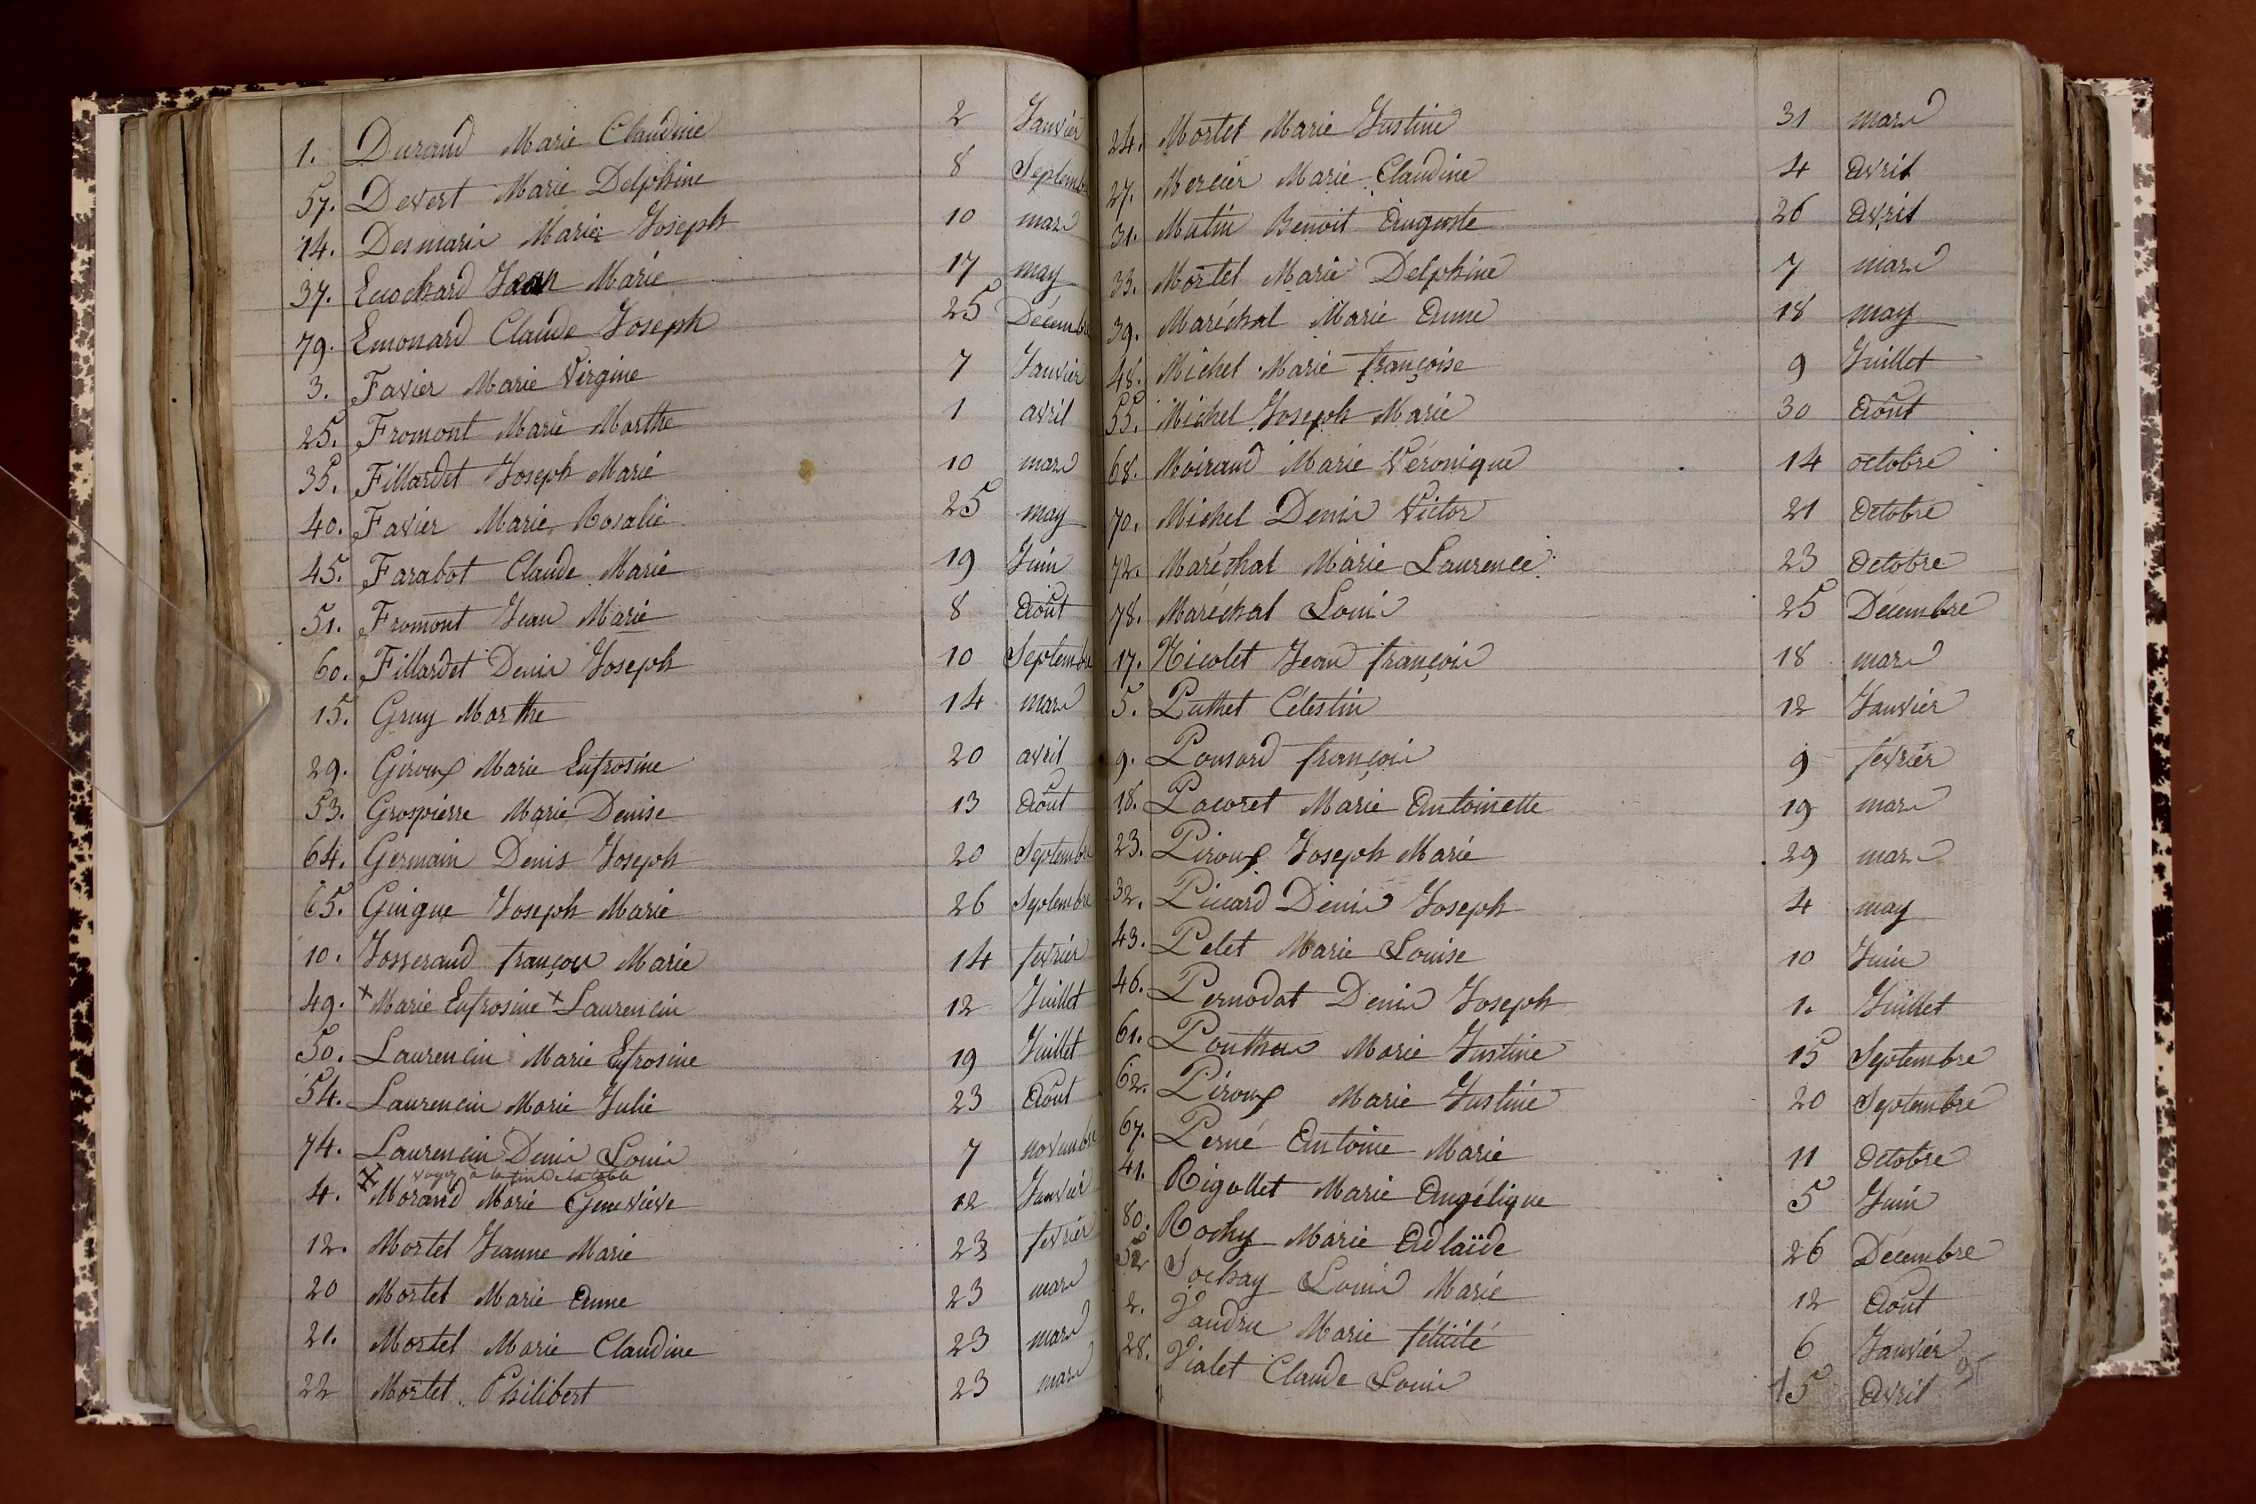 1. Durand Marie Claudine 2 Janvier
57. Devert Marie Delphine 8 Septembre
14. Desmaris Marie Joseph 10 mars
37. Euschard Jean Marie 17 may
79. Emonard Claude Joseph 25 Décembre
3. Favier Marie Virgine 7 Janvier
25. Fromont Marie Marthe 1 avril
35. Fillardet Joseph Marie 10 mars
40. Favier Marie Rosalie 25 may
45. Farabot Claude Marie 19 Juin
51. Fromont Jean Marie 8 Août
60. Fillardet Denis Joseph 10 Septembre
15. Gruy Marthe 14 mars
29. Giroux Marie Eufrosine 20 avril
53. Grospierre Marie Denise 13 Août
64. Germain Denis Joseph 20 Septembre
65. Guigue Joseph Marie 26 Septembre
10. Josserand françois Marie 14 fevrier
49. + Marie Eufrosine + Laurencin 12 Juillet
50. Laurencin Marie Efrosine 19 Juillet
54. Laurencin Marie Julie 23 Août
74. Laurencin Denis Louis 7 novembre
voyez à la fin de la table
4. Morand Marie Genevieve 12 Janvier
12. Mortet Jeanne Marie 23 fevrier
20 Mortet Marie Anne 23 mars
21. Mortet Marie Claudine 23 mars
22 Mortet Philibert 23 mars
24. Mortet Marie Justine 31 mars
27. Mercier Marie Claudine 4 Avril
31. Matin Benoit Auguste 26 Avril
33. Mortet Marie Delphine 7 mars
39. Maréchal Marie Anne 18 may
48. Michel Marie françoise 9 Juillet
55. Michel Joseph Marie 30 Août
68. Moiraud Marie Véronique 14 octobre
70. Michel Denis Victor 21 Octobre
72. Maréchal Marie Laurence 23 Octobre
78. Maréchal Louis 25 Décembre
17. Nicolet Jean françois 18 mars
5. Puthet Célestin 12 Janvier
9. Ponsard françois 9 fevrier
18. Pacoret Marie Antoinette 19 mars
23. Piroux Joseph Marie 29 mars
32. Picard Denis Joseph 4 may
43. Pelet Marie Louise 10 Juin
46. Pernodat Denis Joseph 1. Juillet
61. Pouthus Marie Justine 15 Septembre
62. Piroux Marie Justine 20 Septembre
67. Perné Antoine Marie 11 Octobre
41. Rigollet Marie Angélique 5 Juin
80. Rochy Marie Adlaïde 26 Décembre
52 Sochay Louis Marie 12 Août
2. Vaudru Marie félicité 6 Janvier
28. Vialet Claude Louis 15 Avril